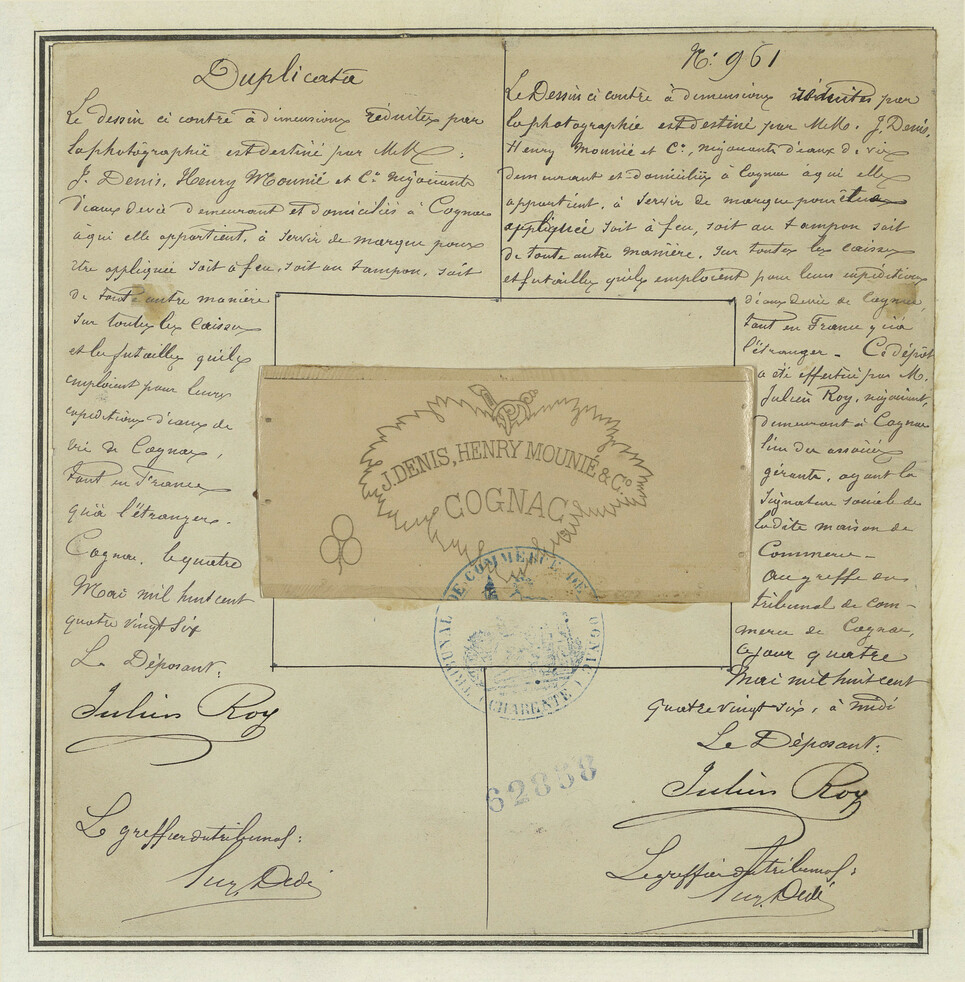 Duplicata
Le dessin ci contre à dimensions réduites par
la photographie est destiné par MM.
J. Denis, Henry Mounié et Cº négociants
d'eaux de vie demeurant et domiciliés à Cognac
à qui elle appartient, à servir de marque pour
être appliquée soit à feu, soit au tampon, soit
de toute autre manière
sur toutes les caisses
et les futailles qu'ils
emploient pour leurs
expéditions d'eaux de
vie de Cognac,
tant en France
qu'à l'étranger.
Cognac, le quatre
Mai mil huit cent
quatre vingt six
Le Déposant:
Julien Roy
Le greffier du tribunal:
Nº 961
Le Dessin ci contre à dimensions réduites par
la photographie est destiné par MM. J. Denis,
Henry Mounié et Cº, négociants d'eaux de vie
demeurant et domiciliés à Cognac à qui elle
appartient, à servir de marque pour être
appliquée soit à feu, soit au tampon soit
de toute autre manière, sur toutes les caisses
et futailles qu'ils emploient pour leurs expéditions
d'eaux de vie de Cognac,
tant en France qu'à
l'étranger. Ce dépôt
a été effectué par M.
Julien Roy, négociant,
demeurant à Cognac
l'un des associés
gérants, ayant la
signature sociale de
la dite maison de
Commerce
au greffe du
tribunal de com-
merce de Cognac,
ce jour quatre
Mai mil huit cent
quatre vingt six, à midi
Le Déposant:
Julien Roy
Le greffier du tribunal:
J. DENIS, HENRY MOUNIÉ & Cº
COGNAC
TRIBUNAL DE COMMERCE DE COGNAC
(CHARENTE)
62838